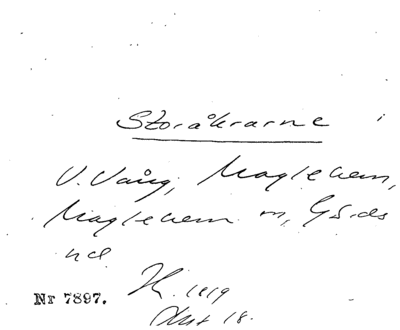 Storåkrarne
V. Vång, Maglehem,
Maglehem sn, Gärds
hd
Nr 7897. 1819
Akt 18.